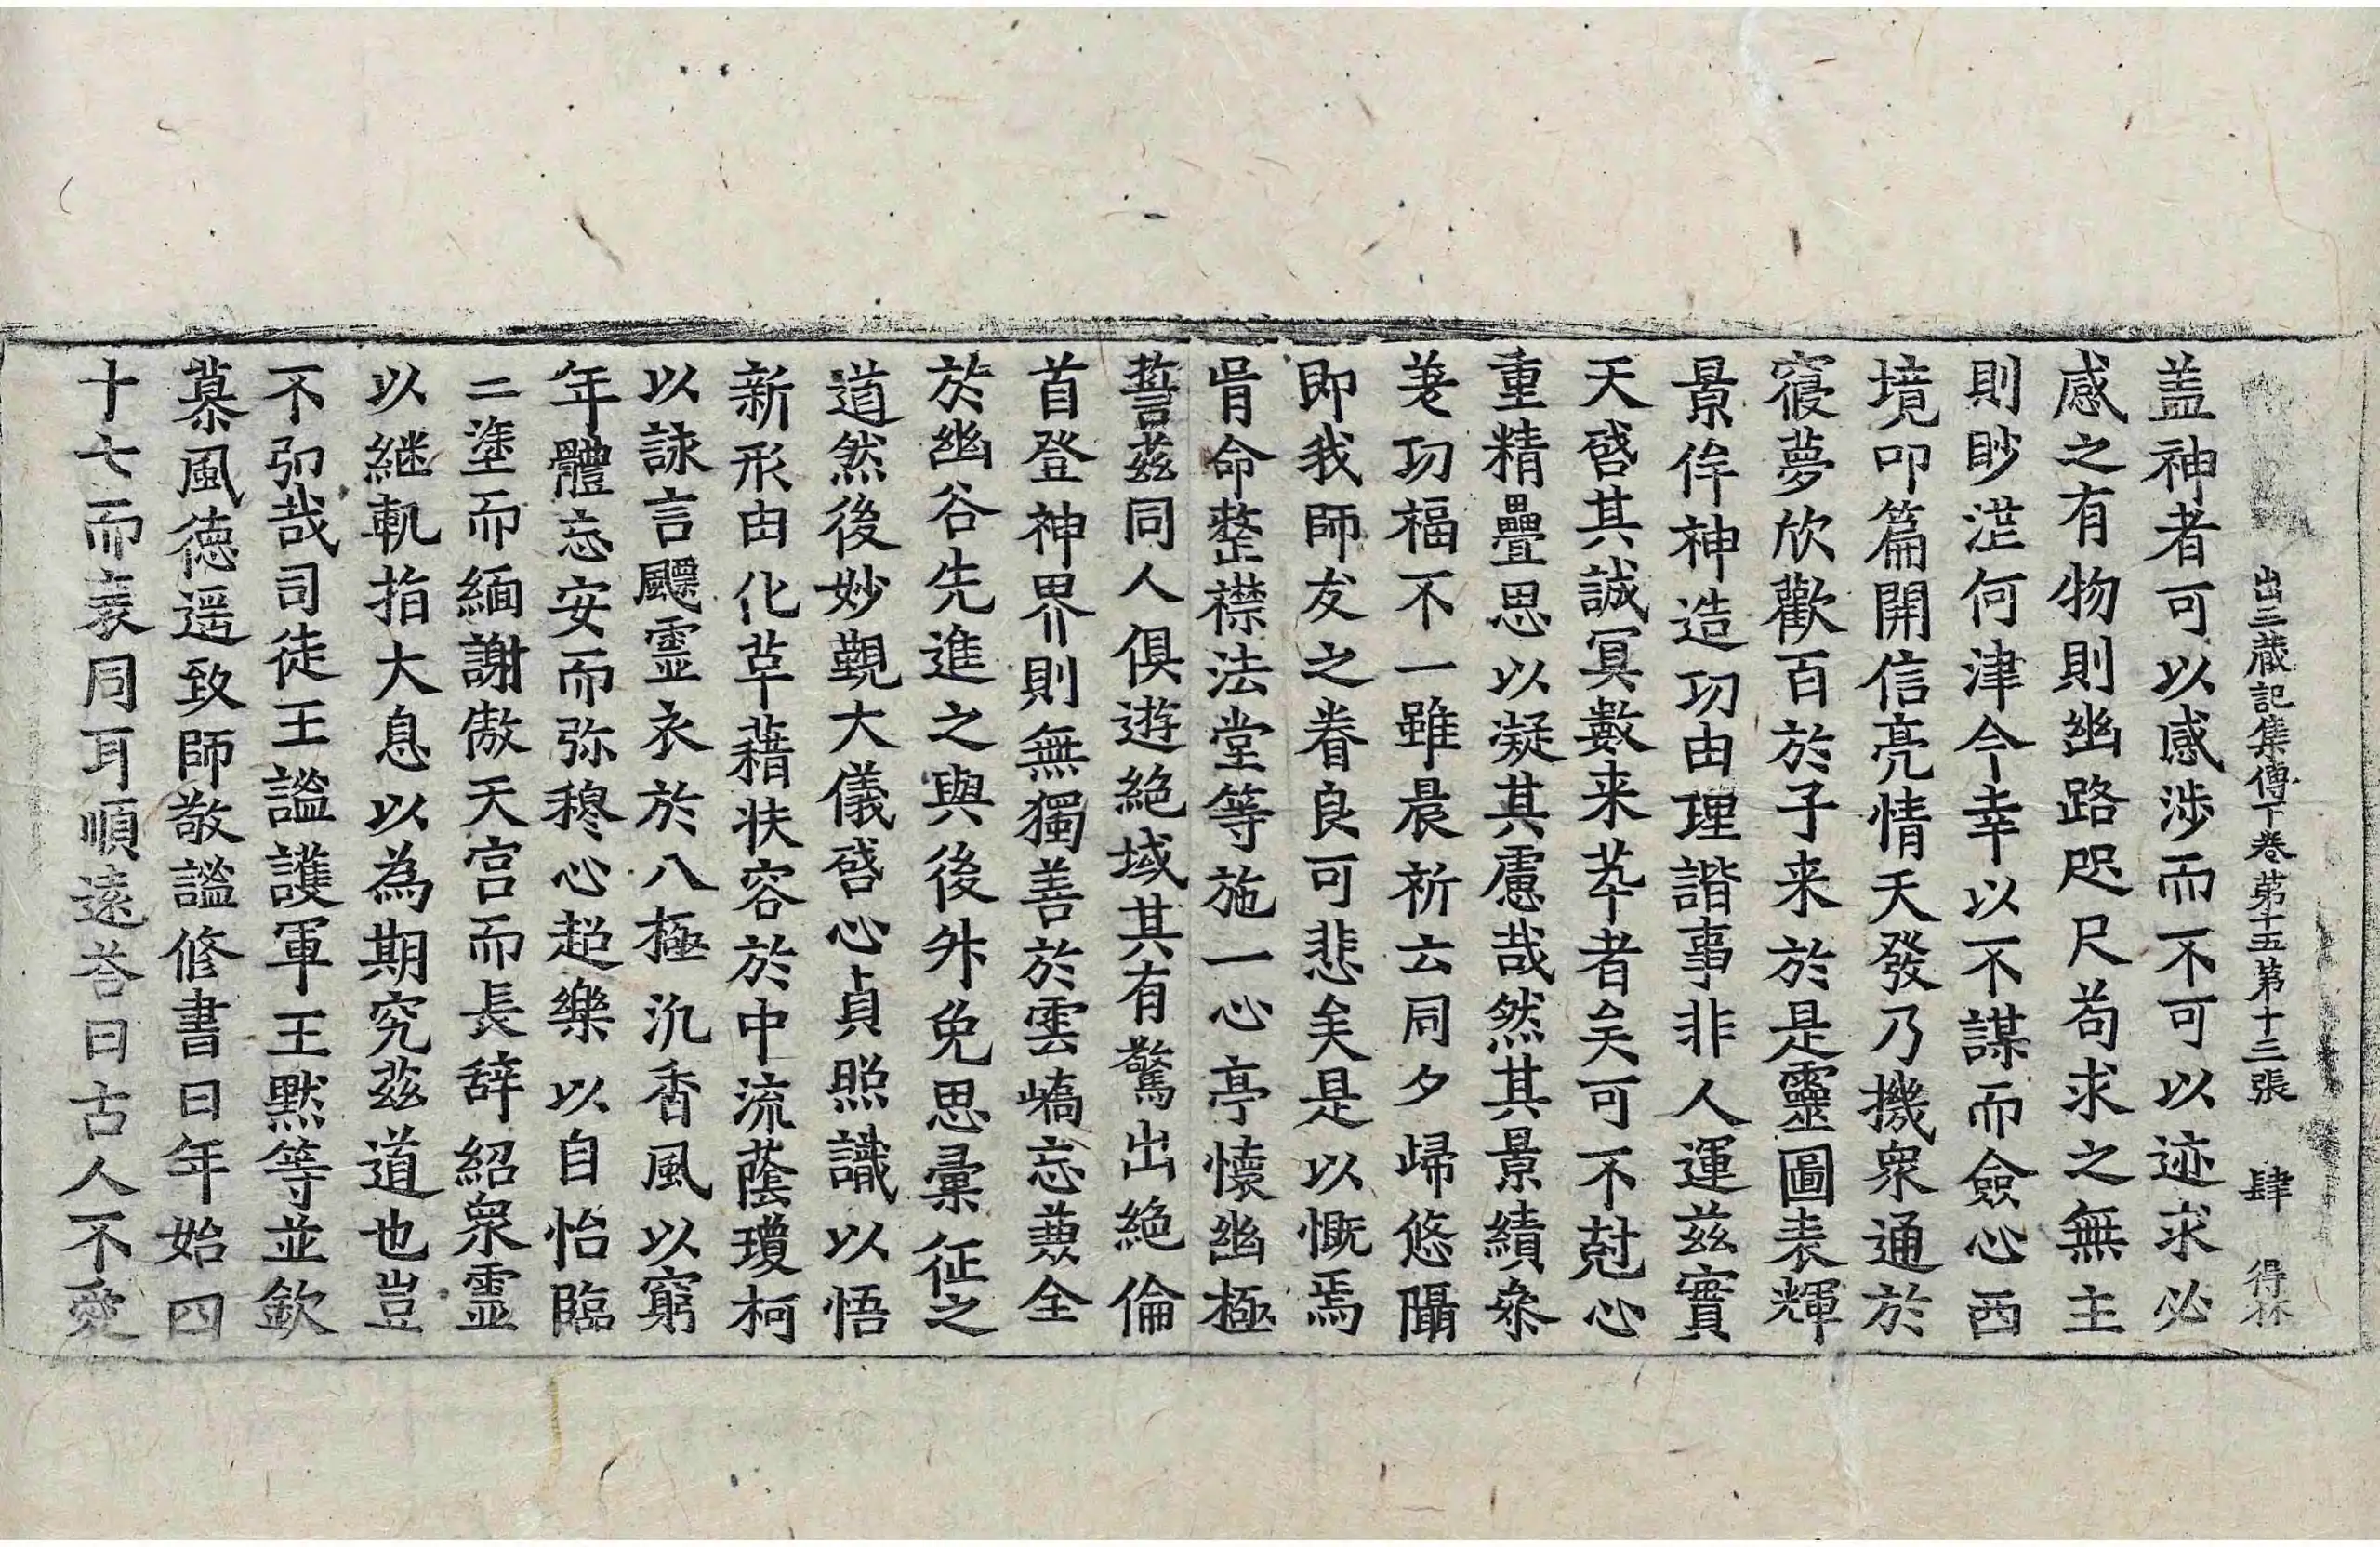 出三藏記集傳下卷第十五第十三張 肆 得林
盖神者可以感涉而不可以迹求必
感之有物則幽路咫尺苟求之無主
則眇茫何津今幸以不謀而僉心西
境叩篇開信亮情天發乃機衆通於
寢夢欣歡百於子来於是靈圖表輝
景侔神造功由理諧事非人運兹實
天啓其誠冥數来萃者矣可不尅心
重精疊思以凝其慮哉然其景績叅
差功福不一雖晨祈云同夕歸悠隔
即我師友之眷良可悲矣是以慨焉
胥命整襟法堂等施一心亭懷幽極
誓茲同人俱遊絶域其有驚出絶倫
首登神界則無獨善於雲嶠忘兼全
於幽谷先進之與後升免思彙征之
道然後妙觀大儀啓心貞照識以悟
新形由化革藉扶容於中流蔭瓊柯
以詠言飄霊衣於八極汎香風以窮
年體忘安而弥穆心超樂以自怡臨
三塗而緬謝傲天宫而長辞紹衆霊
以継軌指大息以為期究茲道也豈
不弘哉司徒王謐護軍王默等並欽
慕風徳遥致師敬謐修書曰年始四
十七而衰同耳順遠荅曰古人不愛